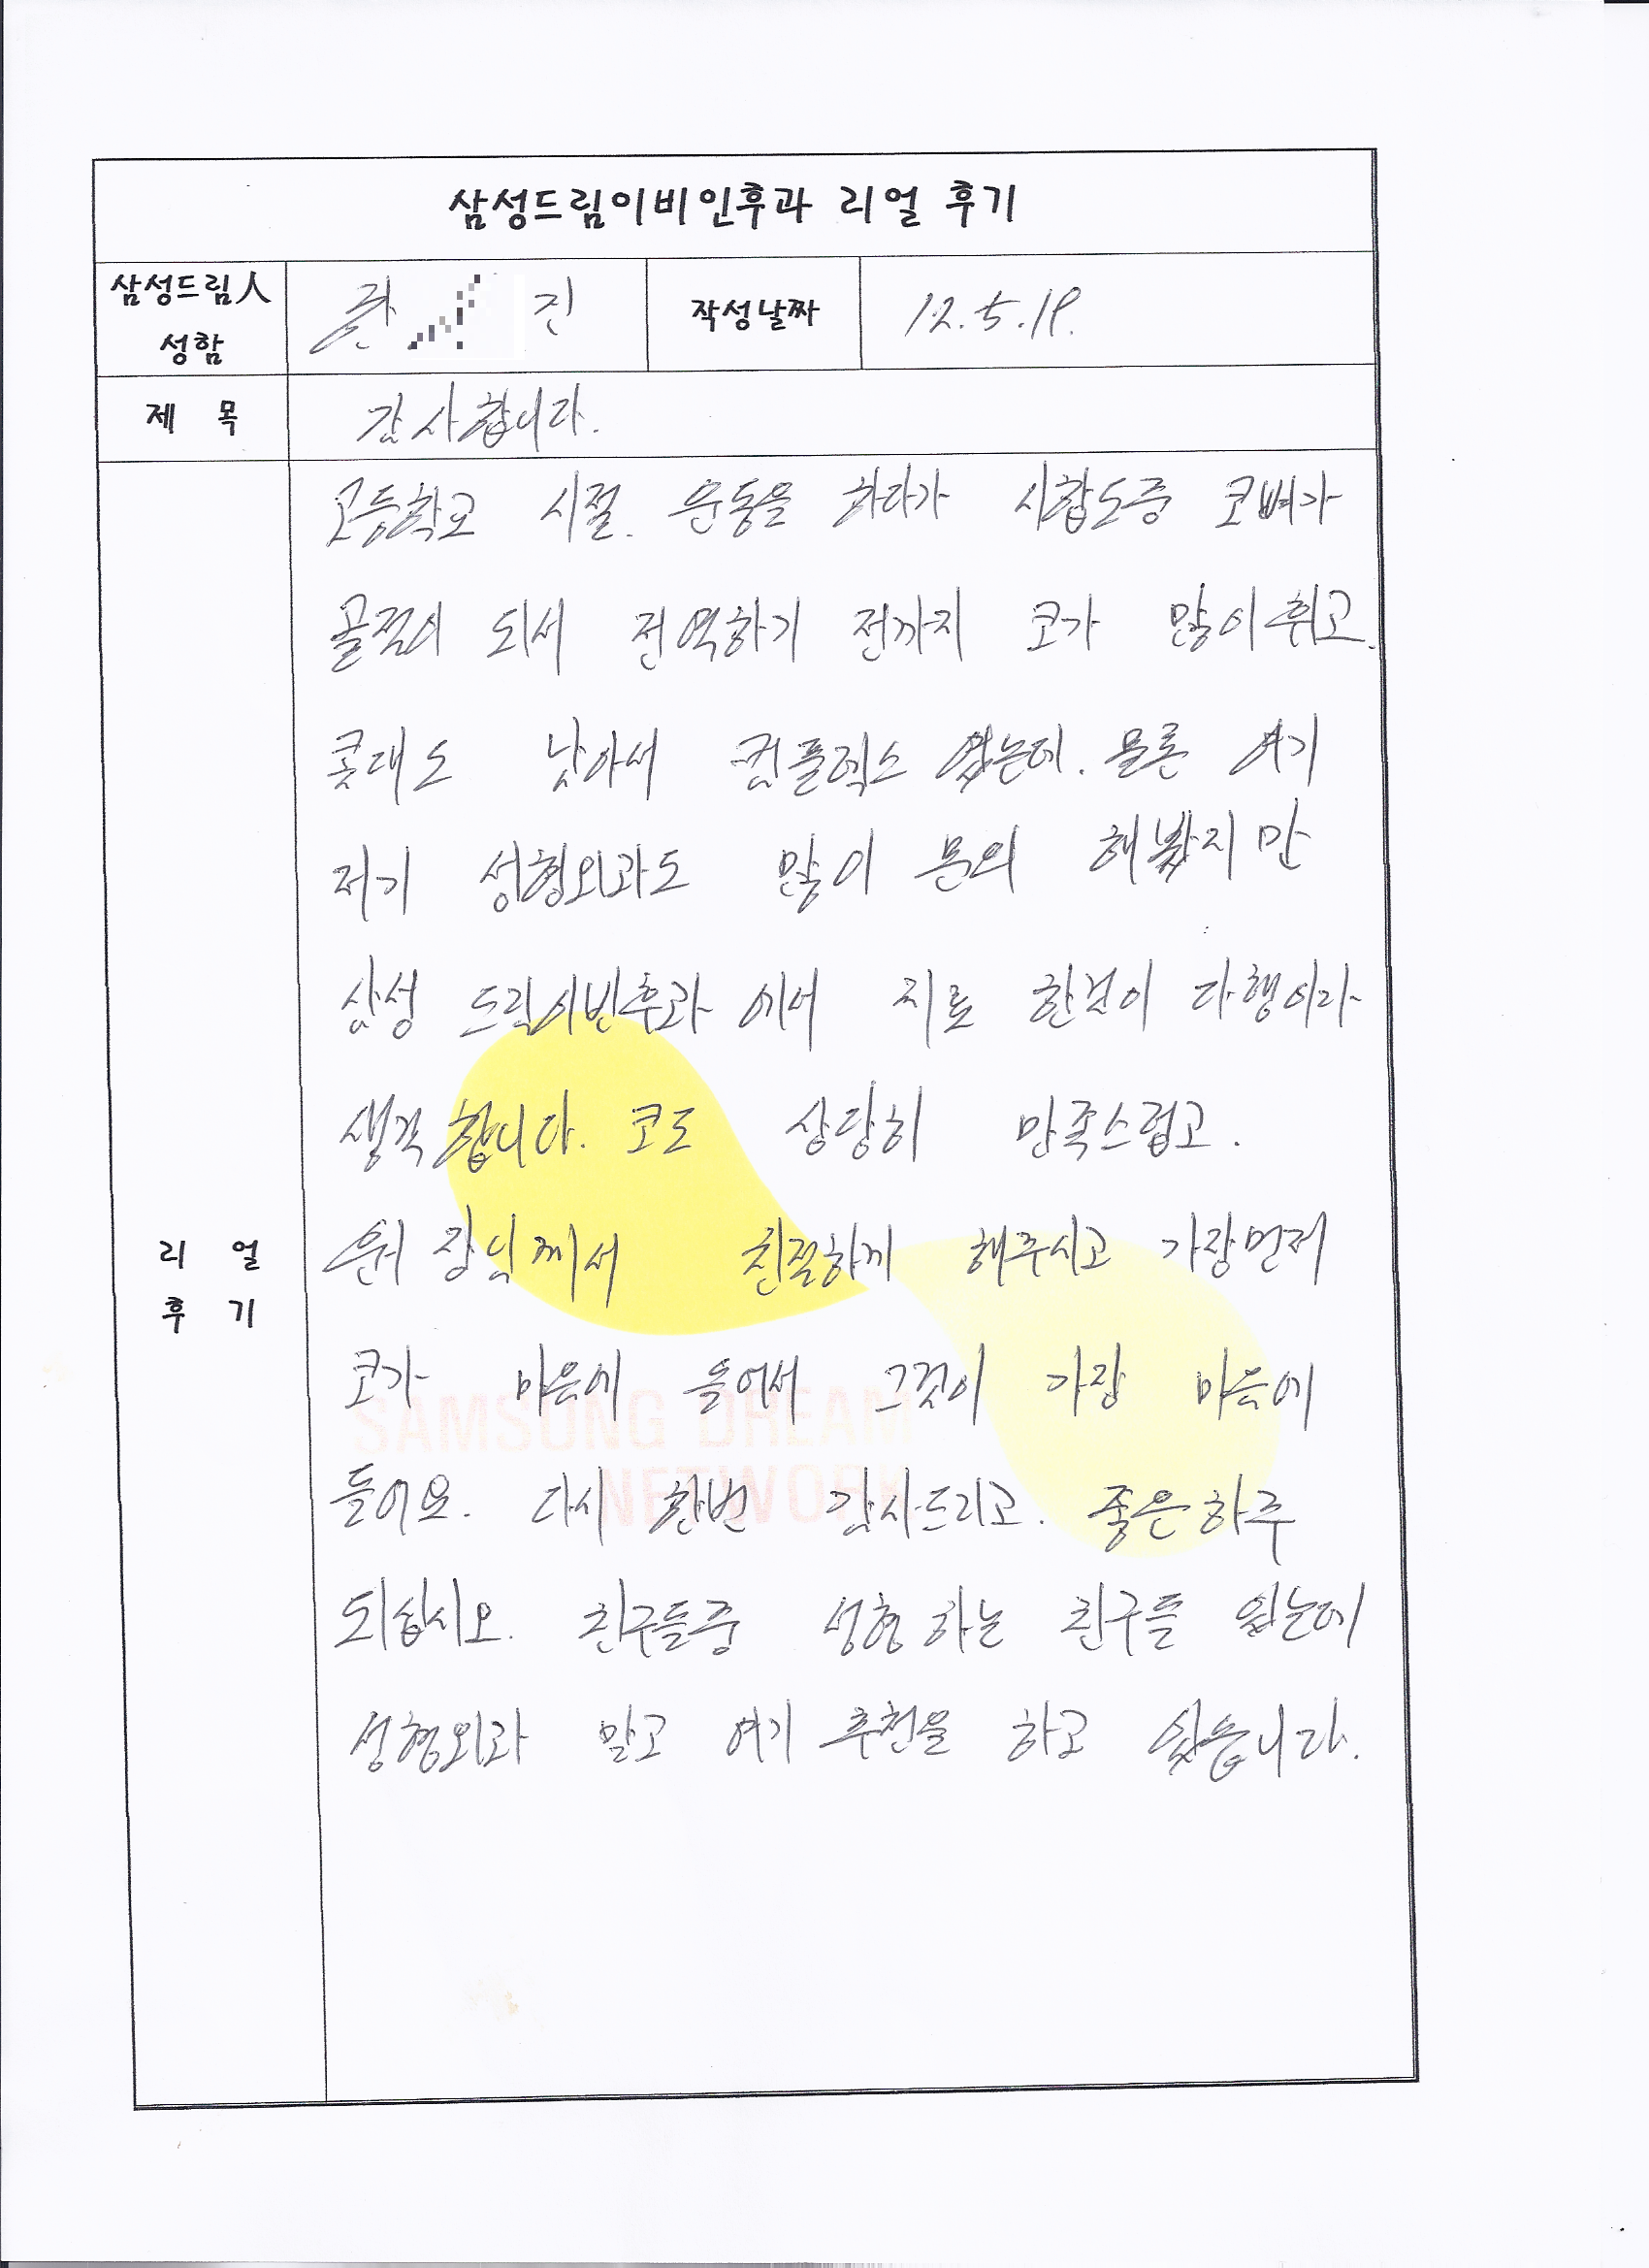 삼성드림이비인후과 리얼 후기
삼성드림人 성함
진
작성날짜
12.5.19.
제 목
감사합니다.
리 얼 후 기
고등학교 시절. 운동을 하다가 시합도중 코뼈가
골절이 되서 전역하기 전까지 코가 많이 휘고.
콧대도 낮아서 컴플렉스 였는데. 물론 여기
저기 성형외과도 많이 문의 해봤지만
삼성 드림이빈후과 에서 치료 한것이 다행이라
생각합니다. 코도 상당히 만족스럽고.
원장님께서 친절하게 해주시고 가장먼저
코가 마음에 들어서 그것이 가장 마음에
들어요. 다시 한번 감사드리고. 좋은하루
되십시오. 친구들중 성형하는 친구들 있는데
성형외과 말고 여기 추천을 하고 싶습니다.
SAMSUNG DREAM
NETWORK